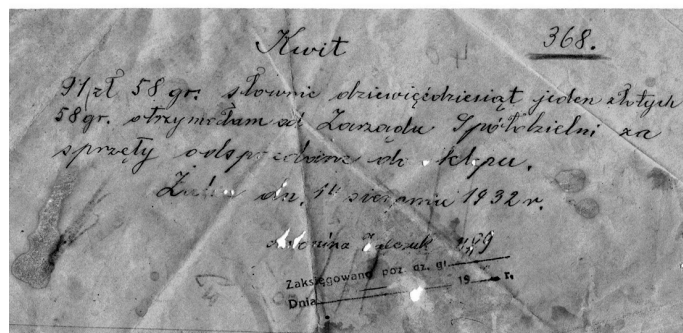 Kwit 368.
91 zł 58 gr. słownie dziewięćdziesiąt jeden złotych
58 gr. otrzymałam od Zarządu Spółdzielni za
sprzęty odsprzedane do sklepu.
dn. 1 sierpnia 1932 r.
Zaksięgowano poz. dz. gł.
Dnia 19 r.